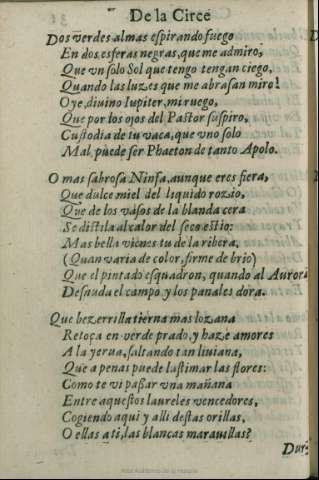 De la Circe
Dos verdes almas espirando fuego
En dos esferas negras, que me admiro,
Que vn solo Sol que tengo tengan ciego,
Quando las luzes que me abrasan miro!
Oye, diuino Iupiter, mi ruego,
Que por los ojos del Pastor suspiro,
Custodia de tu vaca, que vno solo
Mal puede ser Phaeton de tanto Apolo.
O mas sabrosa Ninfa, aunque eres fiera,
Que dulce miel del liquido rozio,
Que de los vasos de la blanda cera
Se distila al calor del seco estio:
Mas bella vienes tu de la ribera,
(Quan varia de color, firme de brio)
Que el pintado esquadron, quando al Aurora
Desnuda el campo, y los panales dora.
Que bezerrilla tierna mas lozana
Retoça en verde prado, y haze amores
A la yerua, saltando tan liuiana,
Que a penas puede lastimar las flores:
Como te vi passar vna mañana
Entre aquestos laureles vencedores,
Cogiendo aqui y alli destas orillas,
O ellas a ti, las blancas marauillas?
Real Academia de la Historia